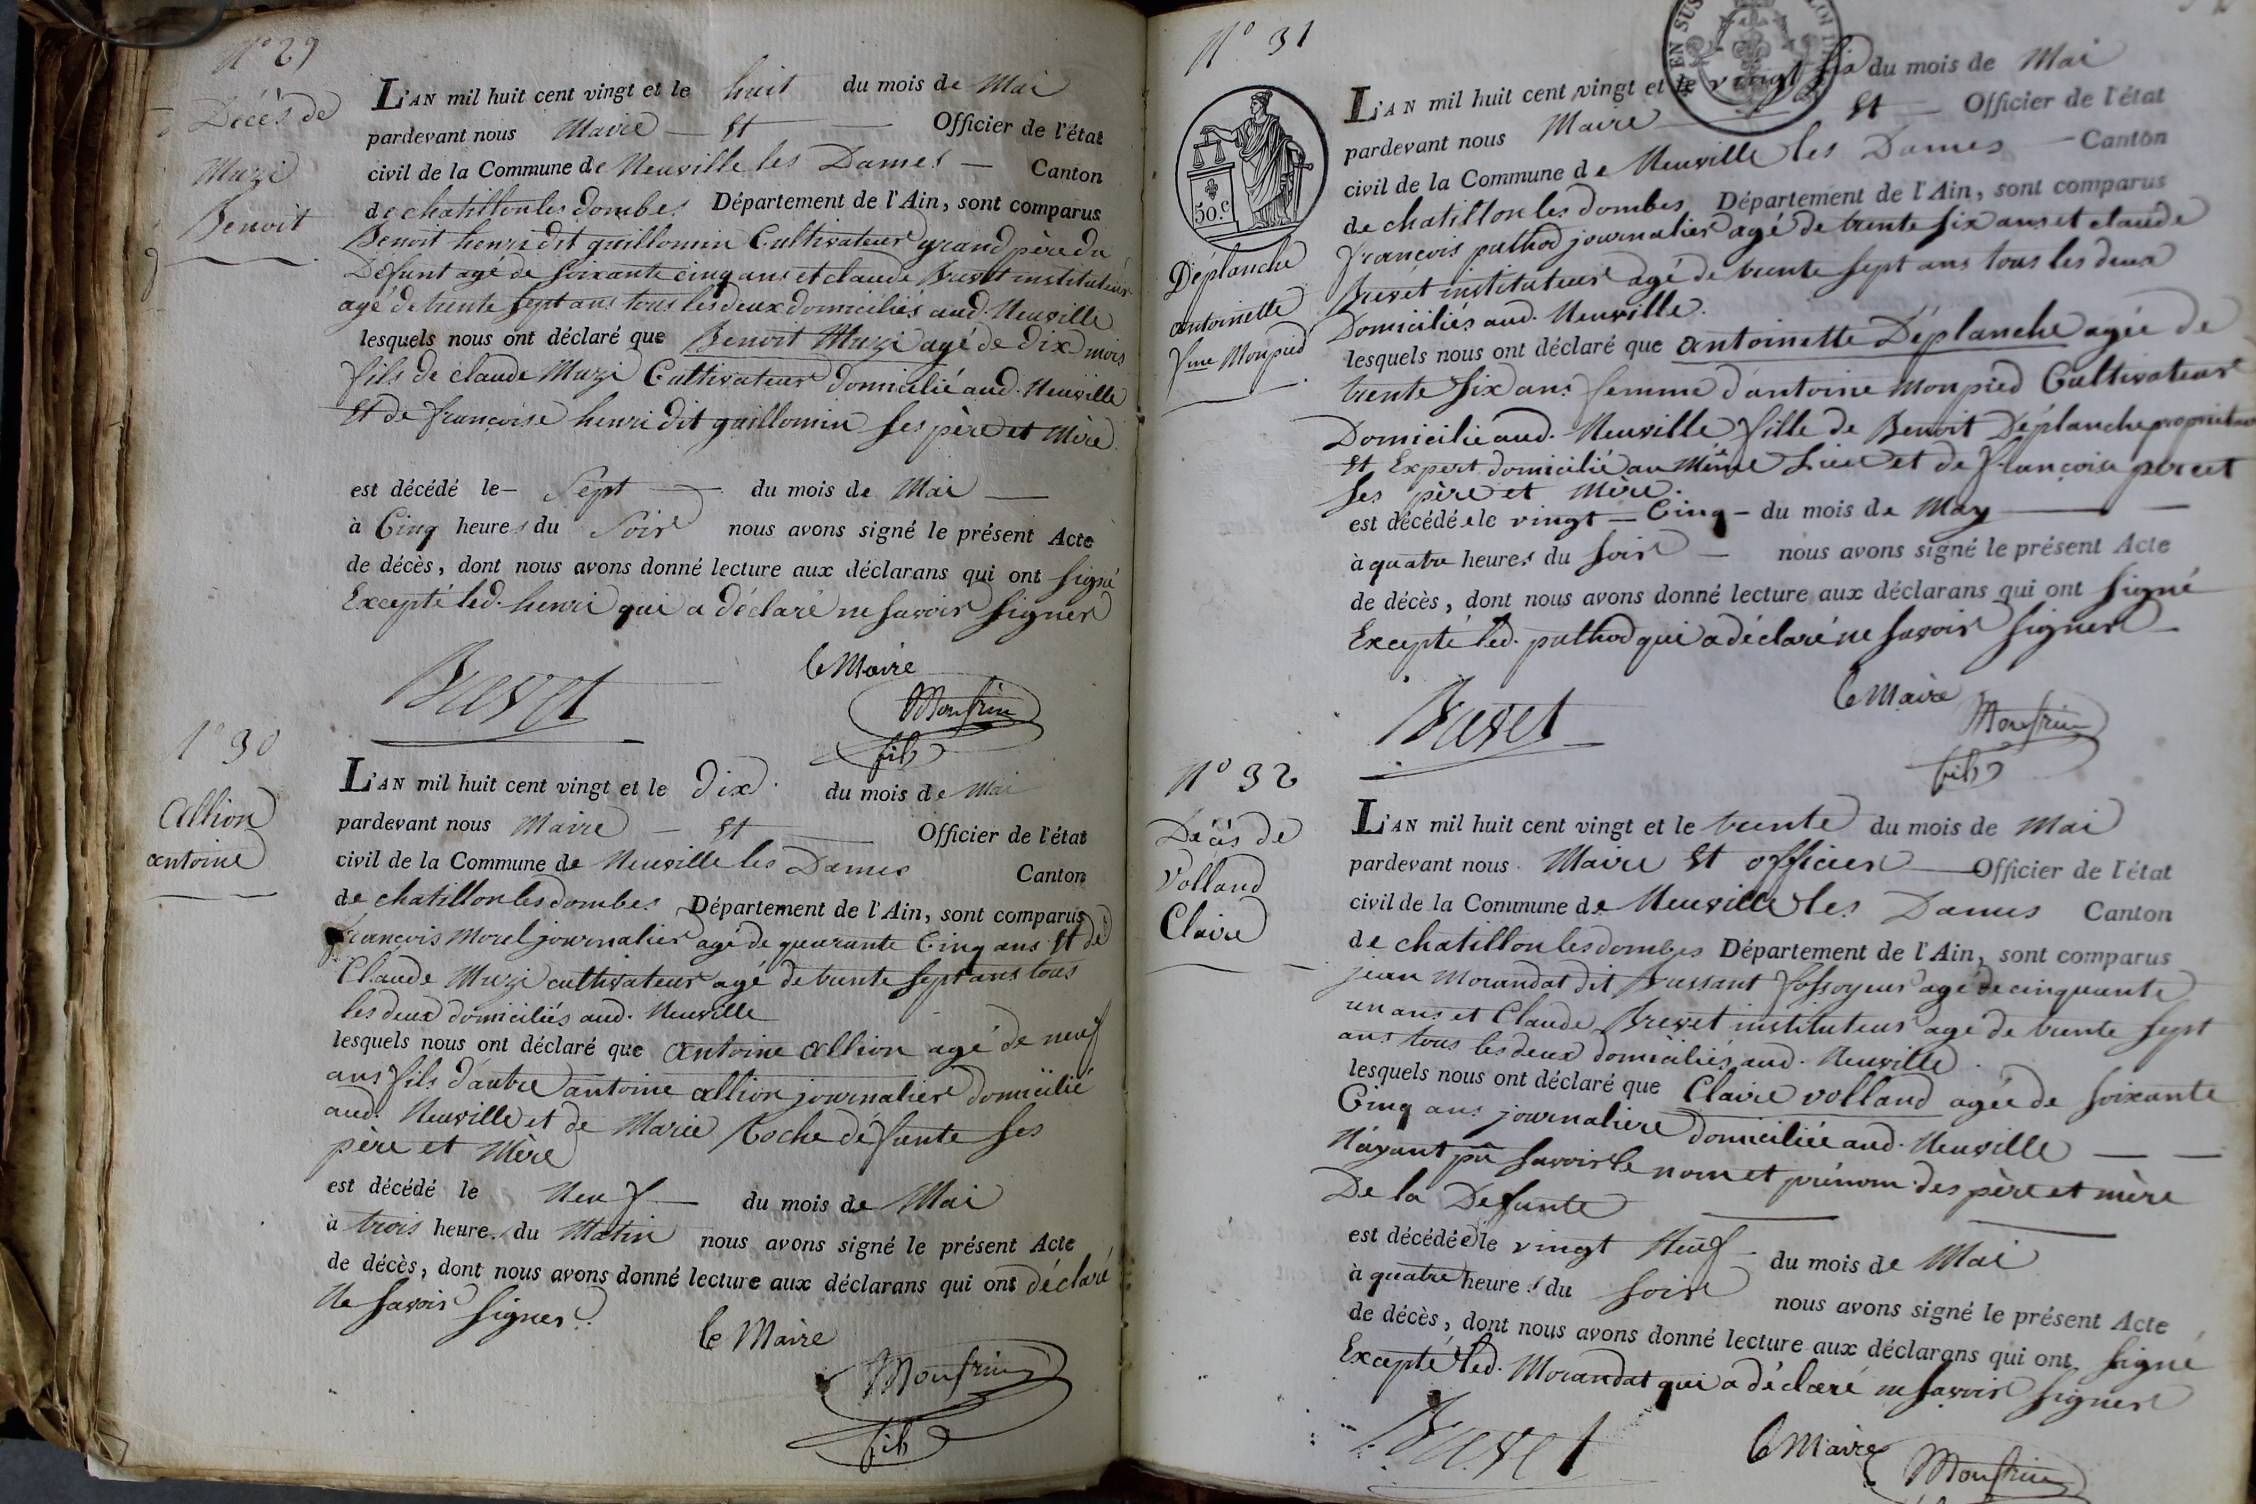 N° 29
Décès de
Muzi
Benoit
L'AN mil huit cent vingt et le huit du mois de Mai
pardevant nous Maire — Et — Officier de l'état
civil de la Commune de Neuville les Dames — Canton
de chatillon les dombes Département de l'Ain, sont comparus
Benoit henri dit guillomin Cultivateur grand père du
Défunt agé de soixante cinq ans et claude Brevet instituteur
agé de trente sept ans tous les deux domiciliés aud. Neuville
lesquels nous ont déclaré que Benoit Muzi agé de dix mois
fils de claude Muzi Cultivateur domicilié aud. Neuville
Et de françoise henri dit guillomin ses père et Mère
est décédé le — Sept — du mois de Mai —
à Cinq heures du Soir nous avons signé le présent Acte
de décès, dont nous avons donné lecture aux déclarans qui ont signé
Excepté led. henri qui a déclaré ne savoir signer
Brevet
le Maire
Monfrin
fils
N° 30
Allion
antoine
L'AN mil huit cent vingt et le dix du mois de Mai
pardevant nous Maire — Et — Officier de l'état
civil de la Commune de Neuville les Dames Canton
de chatillon les dombes Département de l'Ain, sont comparus
françois Morel journalier agé de quarante Cinq ans Et de
Claude Muzi cultivateur agé de trente sept ans tous
les deux domiciliés aud. Neuville
lesquels nous ont déclaré que antoine allion agé de neuf
ans fils d'autre antoine allion journalier domicilié
aud. Neuville et de Marie Roche défunte ses
père et Mère
est décédé le Neuf — du mois de Mai
à trois heures du Matin nous avons signé le présent Acte
de décès, dont nous avons donné lecture aux déclarans qui ont déclaré
Ne savoir signer.
le Maire
Monfrin
fils
N° 31
50.c
Déplanche
antoinette
fme Monpied
L'AN mil huit cent vingt et le vingt six du mois de Mai
pardevant nous Maire — Et — Officier de l'état
civil de la Commune de Neuville les Dames — Canton
de chatillon les dombes Département de l'Ain, sont comparus
françois pathod journalier agé de trente six ans et claude
Brevet instituteur agé de trente sept ans tous les deux
Domiciliés aud. Neuville.
lesquels nous ont déclaré que antoinette Déplanche agée de
trente six ans femme d'antoine Monpied Cultivateur
Domicilié aud. Neuville fille de Benoit Déplanche propriétaire
Et Expert domicilié au Même Lieu et de françoise percet
ses père et Mère.
est décédée le vingt — Cinq — du mois de May —
à quatre heures du soir — nous avons signé le présent Acte
de décès, dont nous avons donné lecture aux déclarans qui ont signé
Excepté led. pathod qui a déclaré ne savoir signer —
Brevet
le Maire
Monfrin
fils
N° 32
Décès de
Volland
Claire
L'AN mil huit cent vingt et le trente du mois de Mai
pardevant nous Maire Et officier — Officier de l'état
civil de la Commune de Neuville les Dames Canton
de chatillon les dombes Département de l'Ain, sont comparus
jean Morandat dit Brussant fossoyeur agé de cinquante
un ans et Claude Brevet instituteur agé de trente sept
ans tous les deux domiciliés aud. Neuville.
lesquels nous ont déclaré que Claire volland agée de soixante
Cinq ans journaliere domiciliée aud. Neuville — —
N'ayant pû savoir le nom et prénom des père et mère
De la Defunte
est décédée le vingt Neuf — du mois de Mai
à quatre heures du soir nous avons signé le présent Acte
de décès, dont nous avons donné lecture aux déclarans qui ont signé
Excepté led. Morandat qui a déclaré ne savoir signer
Brevet
le Maire
Monfrin